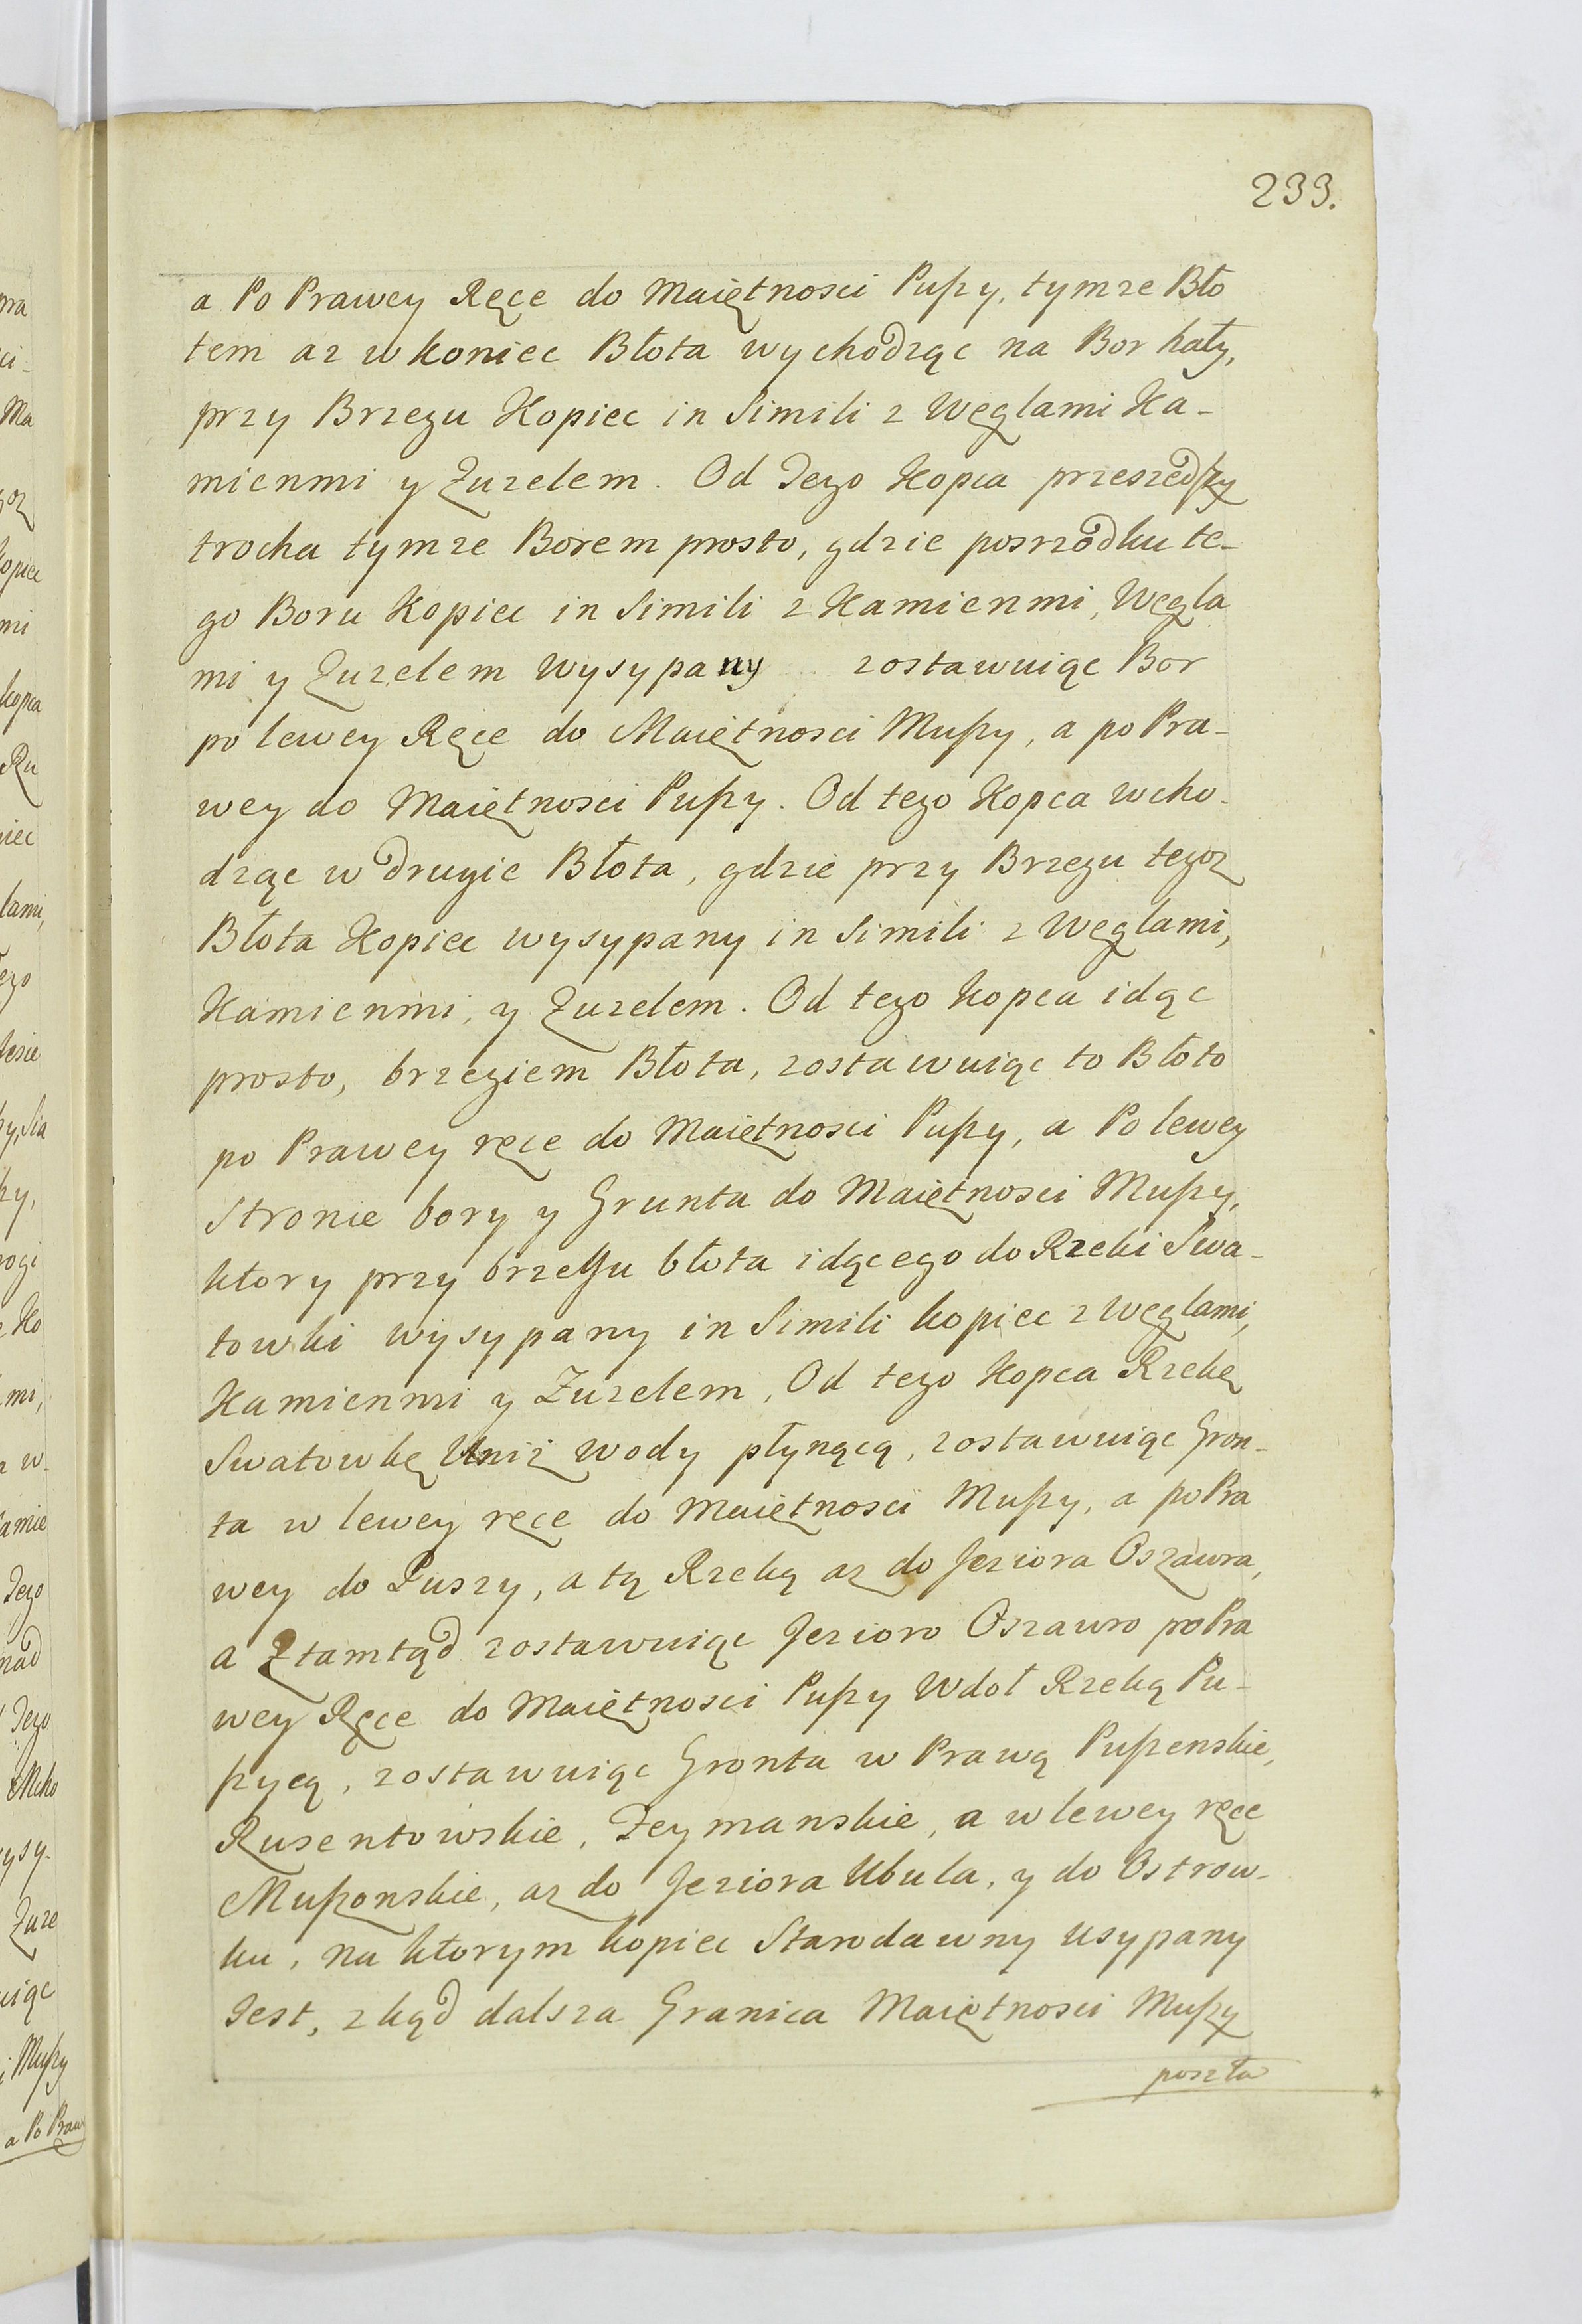 233.
a Po Prawey Ręce do Maiętnosci Pußy, tymze Bło
tem az w koniec Błota wychodząc na Bor hały,
przy Brzegu Kopiec in Simili z Węglami Ka-
mienmi y Zuzelem. Od Tego Kopca przeszedßy
trocha tymze Borem prosto, gdzie posrzodku te-
go Boru Kopiec in Simili z Kamienmi, Węgla
mi y Zuzelem wysypany zostawuiąc Bor
po lewey Ręce do Maiętnosci Mußy, a po Pra-
wey do Maiętnosci Pußy. Od tego Kopca wcho-
dząc w drugie Błota, gdzie przy Brzegu tegoz
Błota Kopiec wysypany in Simili z Węglami,
Kamienmi, y Zuzelem. Od tego Kopca idąc
prosto, brzegiem Błota, zostawuiąc to Błoto
po Prawey ręce do Maiętnosci Pußy, a Po lewey
Stronie bory y Grunta do Maiętnosci Mußy,
ktory przy brzegu błota idącego do Rzeki Swa-
towki wysypany in Simili kopiec z Węglami,
Kamienmi y Zuzelem, Od tego Kopca Rzekę
Swatowkę Uniz wody płynącą, zostawuiąc Gron-
ta w lewey ręce do Maiętnosci Mußy, a po Pra
wey do Puszy, a tą Rzeką az do Jeziora Oszawra,
a Ztamtąd zostawuiąc Jezioro Oszawro po Pra
wey Ręce do Maiętnosci Pußy Wdoł Rzeką Pu-
ßycą, zostawuiąc Gronta w Prawą Pußenskie,
Rusentowskie, Zeymanskie, a w lewey ręce
Mußonskie, az do Jeziora Ubula, y do Ostrow-
ku, na ktorym kopiec Starodawny usypany
Jest, zkąd dalsza Granica Maiętnosci Mußy
poszła